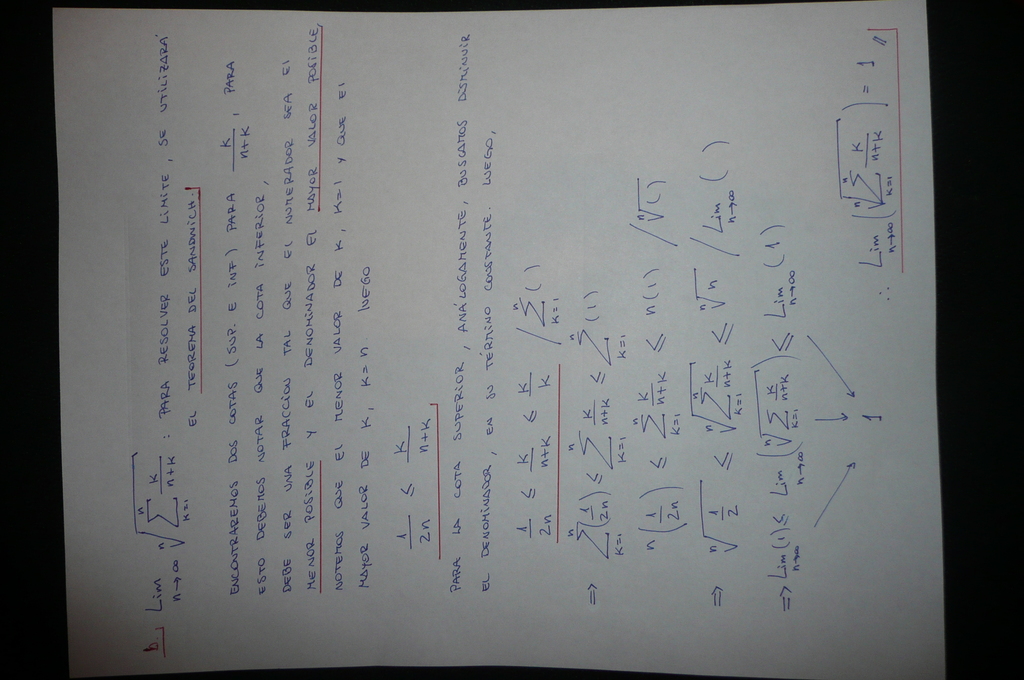 b.) Lim n→∞ ⁿ√(∑ₖ₌₁ⁿ k/(n+k)) : PARA RESOLVER ESTE LIMITE, SE UTILIZARÁ
EL TEOREMA DEL SANDWICH.
ENCONTRAREMOS DOS COTAS (SUP. E INF) PARA k/(n+k), PARA
ESTO DEBEMOS NOTAR QUE LA COTA INFERIOR,
DEBE SER UNA FRACCION TAL QUE EL NUMERADOR SEA EL
MENOR POSIBLE Y EL DENOMINADOR EL MAYOR VALOR POSIBLE,
NOTEMOS QUE EL MENOR VALOR DE K, K=1 Y QUE EL
MAYOR VALOR DE K, K=n LUEGO
1/2n ≤ k/(n+k)
PARA LA COTA SUPERIOR, ANÁLOGAMENTE, BUSCAMOS DISMINUIR
EL DENOMINADOR, EN SU TÉRMINO CONSTANTE. LUEGO,
1/2n ≤ k/(n+k) ≤ k/k / ∑ₖ₌₁ⁿ ( )
=> ∑ₖ₌₁ⁿ (1/2n) ≤ ∑ₖ₌₁ⁿ k/(n+k) ≤ ∑ₖ₌₁ⁿ (1)
n (1/2n) ≤ ∑ₖ₌₁ⁿ k/(n+k) ≤ n(1) / ⁿ√( )
=> ⁿ√(1/2) ≤ ⁿ√(∑ₖ₌₁ⁿ k/(n+k)) ≤ ⁿ√n / Lim n→∞ ( )
=> Lim n→∞ (1) ≤ Lim n→∞ (ⁿ√(∑ₖ₌₁ⁿ k/(n+k))) ≤ Lim n→∞ (1)
1
∴ Lim n→∞ (ⁿ√(∑ₖ₌₁ⁿ k/(n+k))) = 1 //